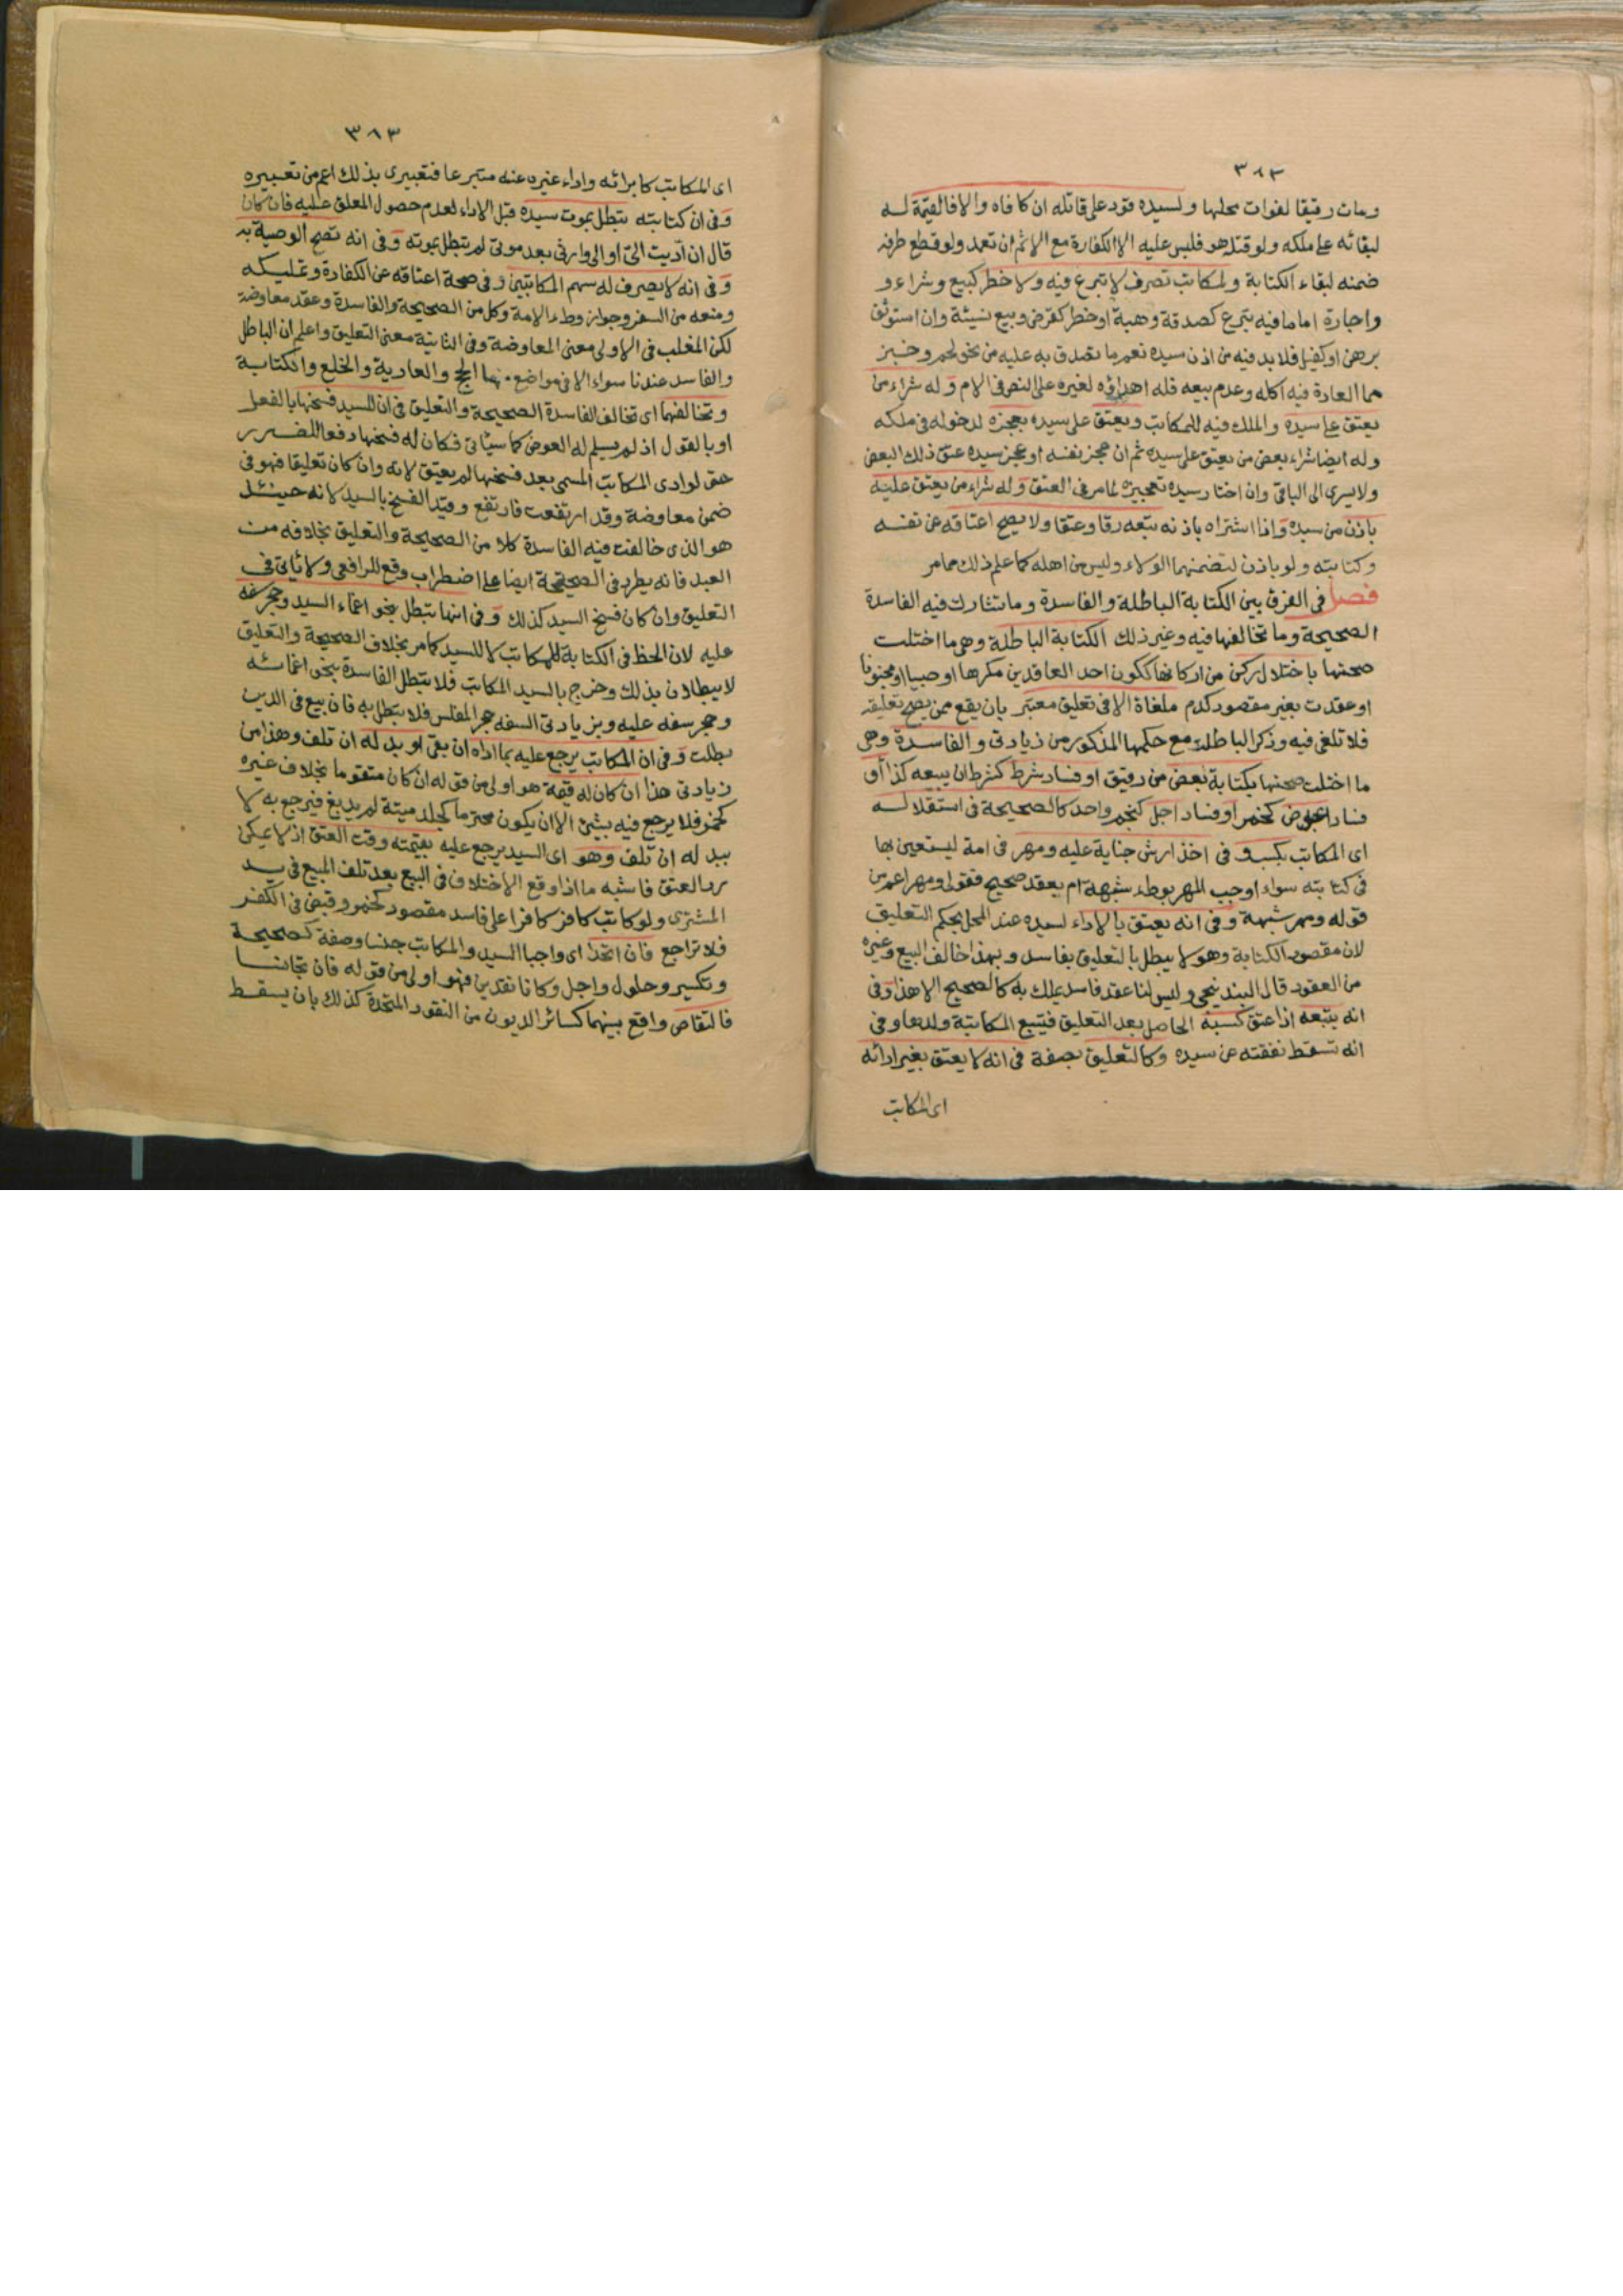 ٣٨٣
ومات رقيقا لفوات محلها ولسيده قود على قاتله ان كافاه والا فالقيمة له
لبقائه على ملكه ولو قتله هو فليس عليه الا الكفارة مع الاثم ان تعمد ولو قطع طرفه
ضمنه لبقاء الكتابة ولمكاتب تصرف لا تبرع فيه ولا خطر كبيع وشراء و
واجارة اما ما فيه تبرع كصدقة وهبة او خطر كقرض وبيع نسيئة وان استوثق
برهن او كفيل فلا بد فيه من اذن سيده نعم ما تصدق به عليه من نحو لحم وخبز
مما العادة فيه اكله وعدم بيعه فله اهداؤه لغيره على النص فى الام وله شراء من
يعتق على سيده والملك فيه للمكاتب ويعتق على سيده بعجزه لدخوله فى ملكه
وله ايضا شراء بعض من يعتق على سيده ثم ان عجز نفسه او عجزه سيده عتق ذلك البعض
ولا يسرى الى الباقى وان اختار سيده تعجيزه لما مر فى العتق وله شراء من يعتق عليه
باذن من سيده واذا اشتراه باذنه تبعه رقا وعتقا ولا يصح اعتاقه عن نفسه
وكتابته ولو باذن لتضمنهما الولاء وليس من اهله كما علم ذلك مما مر
فصل فى الفرق بين الكتابة الباطلة والفاسدة وما تشارك فيه الفاسدة
الصحيحة وما تخالفها فيه وغير ذلك الكتابة الباطلة وهى ما اختلت
صحتها باختلال ركن من اركانها ككون احد العاقدين مكرها او صبيا او مجنونا
او عقدت بغير مقصود كدم ملغاة الا فى تعليق معتبر بان يقع ممن يصح تعليقه
فلا تلغى فيه وذكر الباطلة مع حكمها المذكور من زيادتى والفاسدة وهى
ما اختلت صحتها بكتابة بعض من رقيق او فساد شرط كشرط ان يبيعه كذا أو
فساد عوض كخمر او فساد اجل كنجم واحد كالصحيحة فى استقلاله
اى المكاتب بكسب و فى اخذ ارش جناية عليه ومهر فى امة ليستعين بها
فى كتابته سواء اوجب المهر بوطء شبهة ام بعقد صحيح فقولى ومهر اعم من
قوله ومهر شبهة وفى انه يعتق بالاداء لسيده عند المحل بحكم التعليق
لان مقصود الكتابة وهو لا يبطل بالتعليق بفاسد وبهذا خالف البيع وغيره
من العقود قال البندنيجى وليس لنا عقد فاسد يملك به كالصحيح الا هذا وفى
انه يتبعه اذا عتق كسبه الحاصل بعد التعليق فيتبع المكاتبة ولدها وفى
انه تسقط نفقته عن سيده وكالتعليق بصفة فى انه لا يعتق بغير ادائه
اى المكاتب
٣٨٣
اى المكاتب كابرائه واداء غيره عنه متبرعا فتعبيرى بذلك اعم من تعبيره
وفى ان كتابته تبطل بموت سيده قبل الاداء لعدم حصول المعلق عليه فان كان
قال ان أديت الىّ او الى وارثى بعد موتى لم تبطل بموته وفى انه تصح الوصية به
وفى انه لا يصرف له سهم المكاتبين وفى صحة اعتاقه عن الكفارة وتمليكه
ومنعه من السفر وجواز وطء الامة وكل من الصحيحة والفاسدة وعقد معاوضة
لكن المغلب فى الاولى معنى المعاوضة وفى الثانية معنى التعليق واعلم ان الباطل
والفاسد عندنا سواء الا فى مواضع منها الحج والعارية والخلع والكتابة
وتخالفهما اى تخالف الفاسدة الصحيحة والتعليق فى ان للسيد فسخها بالفعل
او بالقول اذ لم يسلم له العوض كما سيأتى فكان له فسخها دفعا للضرر
حتى لو ادى المكاتب المسمى بعد فسخها لم يعتق لانه وان كان تعليقا فهو فى
ضمن معاوضة وقد ارتفعت فارتفع وقيد الفسخ بالسيد لانه حينئذ
هو الذى خالفت فيه الفاسدة كلا من الصحيحة والتعليق بخلافه من
العبد فانه يطرد فى الصحيحة ايضا على اضطراب وقع للرافعى ولا يأتى فى
التعليق وان كان فسخ السيد كذلك وفى انها تبطل بنحو اغماء السيد وحجر سفه
عليه لان الحظ فى الكتابة للمكاتب لا للسيد كما مر بخلاف الصحيحة والتعليق
لا يبطلان بذلك وخرج بالسيد المكاتب فلا تبطل الفاسدة بنحو اغمائه
وحجر سفه عليه وبزيادتى السفه حجر المفلس فلا تبطل به فان بيع فى الدين
بطلت وفى ان المكاتب يرجع عليه بما اداه ان بقى او بدله ان تلف وهذا من
زيادتى هذا ان كان له قيمة هو اولى من قوله ان كان متقوما بخلاف غيره
كخمر فلا يرجع فيه بشئ الا ان يكون محترما كجلد ميتة لم يدبغ فيرجع به لا
ببدله ان تلف وهو اى السيد يرجع عليه بقيمته وقت العتق اذ لا يمكن
رد العتق فاشبه ما اذا وقع الاختلاف فى البيع بعد تلف المبيع فى يد
المشترى ولو كاتب كافر كافرا على فاسد مقصود كخمر وقبض فى الكفر
فلا تراجع فان اتحدا اى واجبا السيد والمكاتب جنسا وصفة كصحيحة
وتكسير وحلول واجل وكانا نقدين فهو اولى من قوله فان تجانسا
فالتقاص واقع بينهما كسائر الديون من النقود المتحدة كذلك بان يسقط